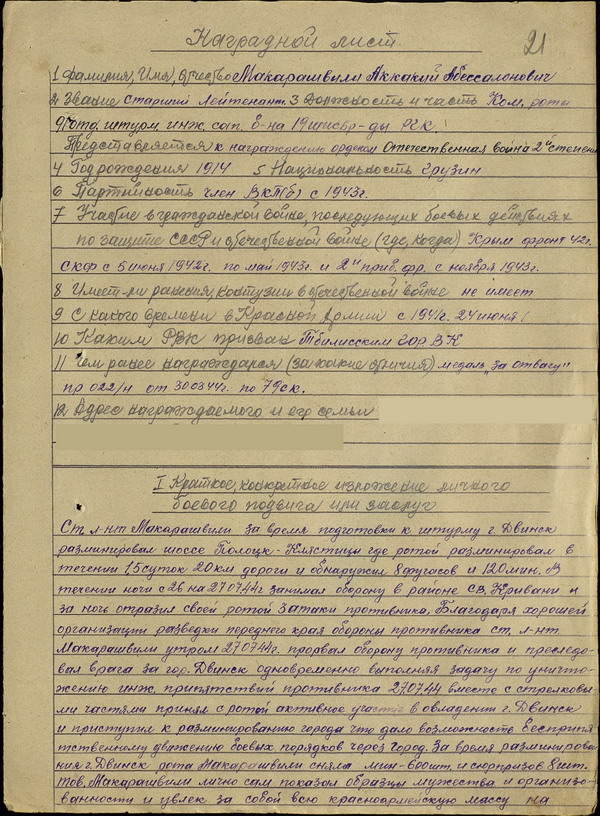 Наградной лист.
21
1 Фамилия, Имя, отчество Макарашвили Аккакий Абессалонович
2 Звание Старший Лейтенант. 3 Должность и часть Ком. роты
отд. штурм. инж. сап. б-на 19 штбр-ды РГК.
Представляется к награждению орденом Отечественная война 2й степени
4 Год рождения 1914 5 Национальность Грузин
6 Партийность член ВКП(б) с 1943г.
7 Участие в гражданской войне, последующих боевых действиях
по защите СССР и отечественной войне (где, когда) Крым фронт 42г.
СКФ с 5 июня 1942г. по май 1943г. и 2й приб. фр. с ноября 1943г.
8 Имеет-ли ранения, контузии в отечественной войне не имеет
9 С какого времени в Красной Армии с 1941г. 24 июня
10 Каким РВК призван Тбилисским гор. В К
11 Чем ранее награждался (за какие отличия) медаль „за отвагу"
пр 022/н от 300344г. по 79ск.
12 Адрес награждаемого и его семьи
I Краткое, конкретное изложение личного
боевого подвига или заслуг
Ст. л-нт Макарашвили за время подготовки к штурму г. Двинск
разминировал шоссе Полоцк-Клястицы где ротой разминировал в
течении 1,5 суток 20 км дороги и обнаружил 8 фугасов и 120 мин. В
течении ночи с 26 на 270744г занимал оборону в районе св. Кривани и
за ночь отразил своей ротой 3 атаки противника. Благодаря хорошей
организации разведки переднего края обороны противника ст. л-нт.
Макарашвили утром 270744г. прорвал оборону противника и преследо-
вал врага за гор. Двинск одновременно выполняя задачу по уничто-
жению инж. припятствий противника 270744 вместе с стрелковы-
ми частями принял с ротой активное участие в овладении г. Двинск
и приступил к разминированию города что дало возможность беспрепя
тственному движению боевых порядков через город. За время разминирова
ния г. Двинск рота Макарашвили сняла мин-800шт. и сюрпризов 8 шт.
тов, Макарашвили лично сам показал образцы мужества и организо-
ванности и увлек за собой всю красноармейскую массу на